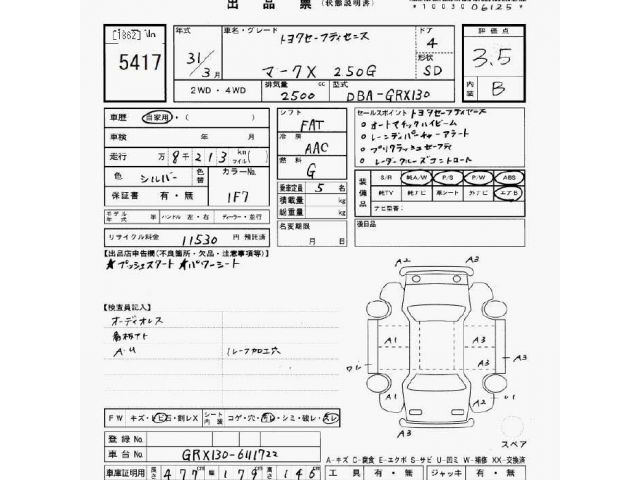 出 品 票 (状態説明書)
*10030 06125*
5417
年式 31/3月
車名・グレード トヨタセーフティセンス
マークX 250G
ドア 4
形状 SD
評価点 3.5
内装 B
2WD ・ 4WD
排気量 2500 cc
型式 DBA-GRX130
車歴 自家用・( )
車検 年 月
走行 万 8千213 km マイル
色 シルバー
色替
カラーNo. 1F7
保証書 有・無
モデル年式 年 ハンドル 左・右 ディーラー・並行
リサイクル料金 11530 円 預託済
シフト FAT
冷房 AAC
燃料 G
乗車定員 5 名
積載量 kg
総重量 kg
名変期限 月 日
セールスポイント トヨタセーフティセンス
○オートマチックハイビーム
○レーンディパーチャーアラート
○プリクラッシュセーフティ
○レーダークルーズコントロール
装備品 S/R 純A/W P/S P/W ABS
純TV 純ナビ 革シート 外ナビ エアB
ナビ型番:
後日品
【出品店申告欄(不良箇所・欠品・注意事項等)】
★プッシュスタート ★パワーシート
【検査員記入】
オーディオレス
A・U
ルーフ加工穴
A2 A3
A3
A1 A1 A3
A3
A3
A1 A3
A2 A1 A2
スペア
FW キズ・ヒビ石・割レX シート内装 コゲ・穴・切レ・シミ・破レ・スレ
登録No.
車台No. GRX130-6111722
A-キズ C-腐食 E-エクボ S-サビ U-凹ミ W-補修 XX-交換済
車庫証明用 長さ 477 cm 幅 179 cm 高さ 146 cm
工具 有・無 ジャッキ 有・無